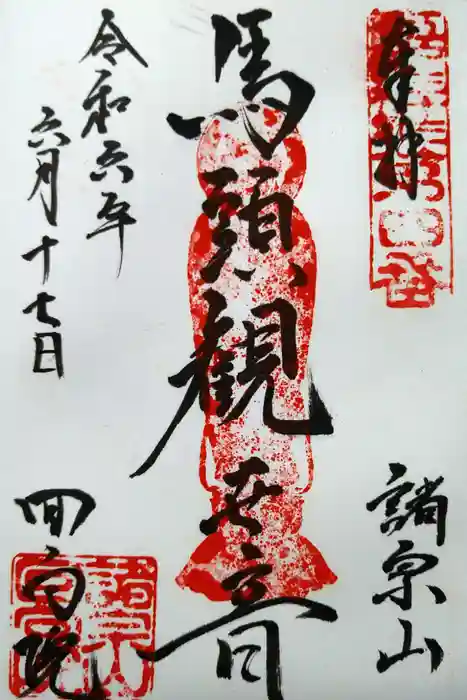 奉拝
諸宗山
馬頭観世音
令和六年
六月十七日
回向院